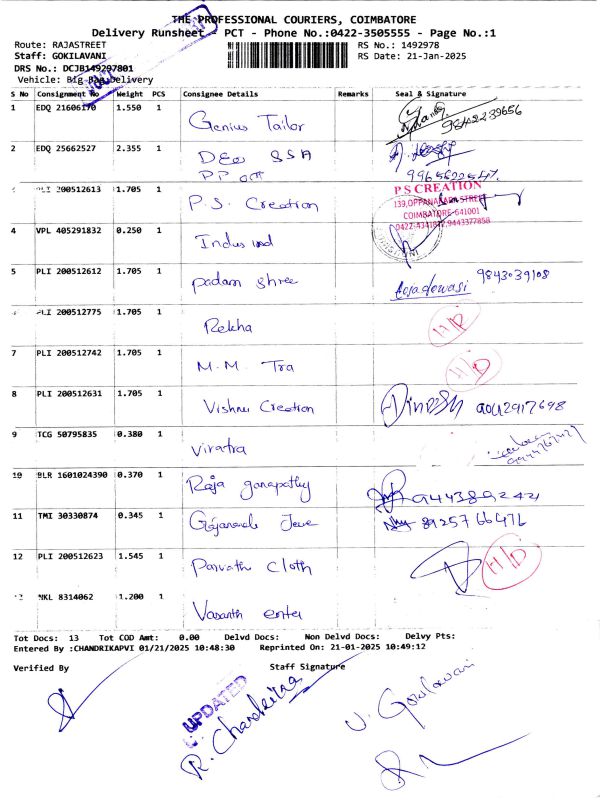 THE PROFESSIONAL COURIERS, COIMBATORE
Delivery Runsheet - PCT - Phone No.:0422-3505555 - Page No.:1
Route: RAJASTREET
Staff: GOKILAVANI
DRS No.: DCJB149297801
Vehicle: Big Bag Delivery
RS No.: 1492978
RS Date: 21-Jan-2025
S No Consignment No Weight PCS Consignee Details Remarks Seal & Signature
1 EDQ 21606170 1.550 1 Genius Tailor 9842239656
2 EDQ 25662527 2.355 1 Dew SSA
PP off
PLI 200512613 1.705 1 P.S. Creation
P S CREATION
139,OPPANAKARA STREET
COIMBATORE-641001
4 VPL 405291832 0.250 1 Indus ind
5 PLI 200512612 1.705 1 padam shree 9843039108
PLI 200512775 1.705 1 Rekha H/D
7 PLI 200512742 1.705 1 M.M. Tra H/D
8 PLI 200512631 1.705 1 Vishnu Creation Dinesh
9 TCG 50795835 0.380 1 Viratra
10 BLR 1601024390 0.370 1 Raja ganapathy
11 TMI 30330874 0.345 1
12 PLI 200512623 1.545 1 Parvathi Cloth H/D
NKL 8314062 1.200 1 Vasanth enter
Tot Docs: 13 Tot COD Amt: 0.00 Delvd Docs: Non Delvd Docs: Delvy Pts:
Entered By :CHANDRIKAPVI 01/21/2025 10:48:30 Reprinted On: 21-01-2025 10:49:12
Verified By Staff Signature
UPDATED
R. Chandrika
V. Gokilavani